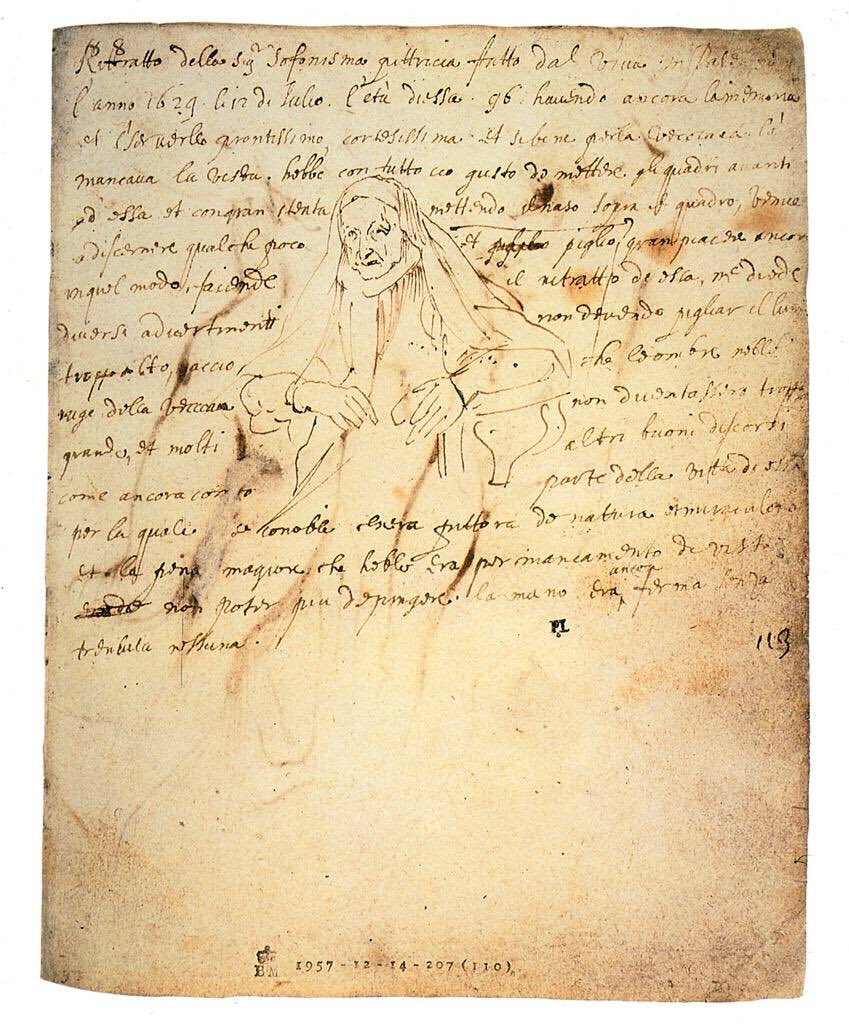 88
Rittratto della Sig.ra Sofonisma pittricia fatto dal vivo in Palermo
l'anno 1629 li 12 di Julio. l'età di essa 96 havendo ancora la memoria
et cortesissima et sebene per la vecciaia le
mancava la vista. hebbe con tutto cio gusto de mettere gli quadri avanti
ad essa et con gran stenta mettendo il naso sopra il quadro, venne
a discernere qualche poco et piglio gran piacere ancora
in quel modo, facendo il ritratto de essa, me diede
diversi advertimenti non devendo pigliar il lume
troppo alto, accio che le ombre nelle
ruge della vecciaia non diventassero troppo
grande, et molti altri buoni discorsi
come ancora conto parte della vitta di essa
per la quale se conobbe ch'era pittora de natura et miraculosa
et la pena magiore che hebbe era per mancamento di vista
non poter piu depingere. la mano era ancora ferma senza
tremula nessuna.
P.L
113
BM 1957-12-14-207(110)